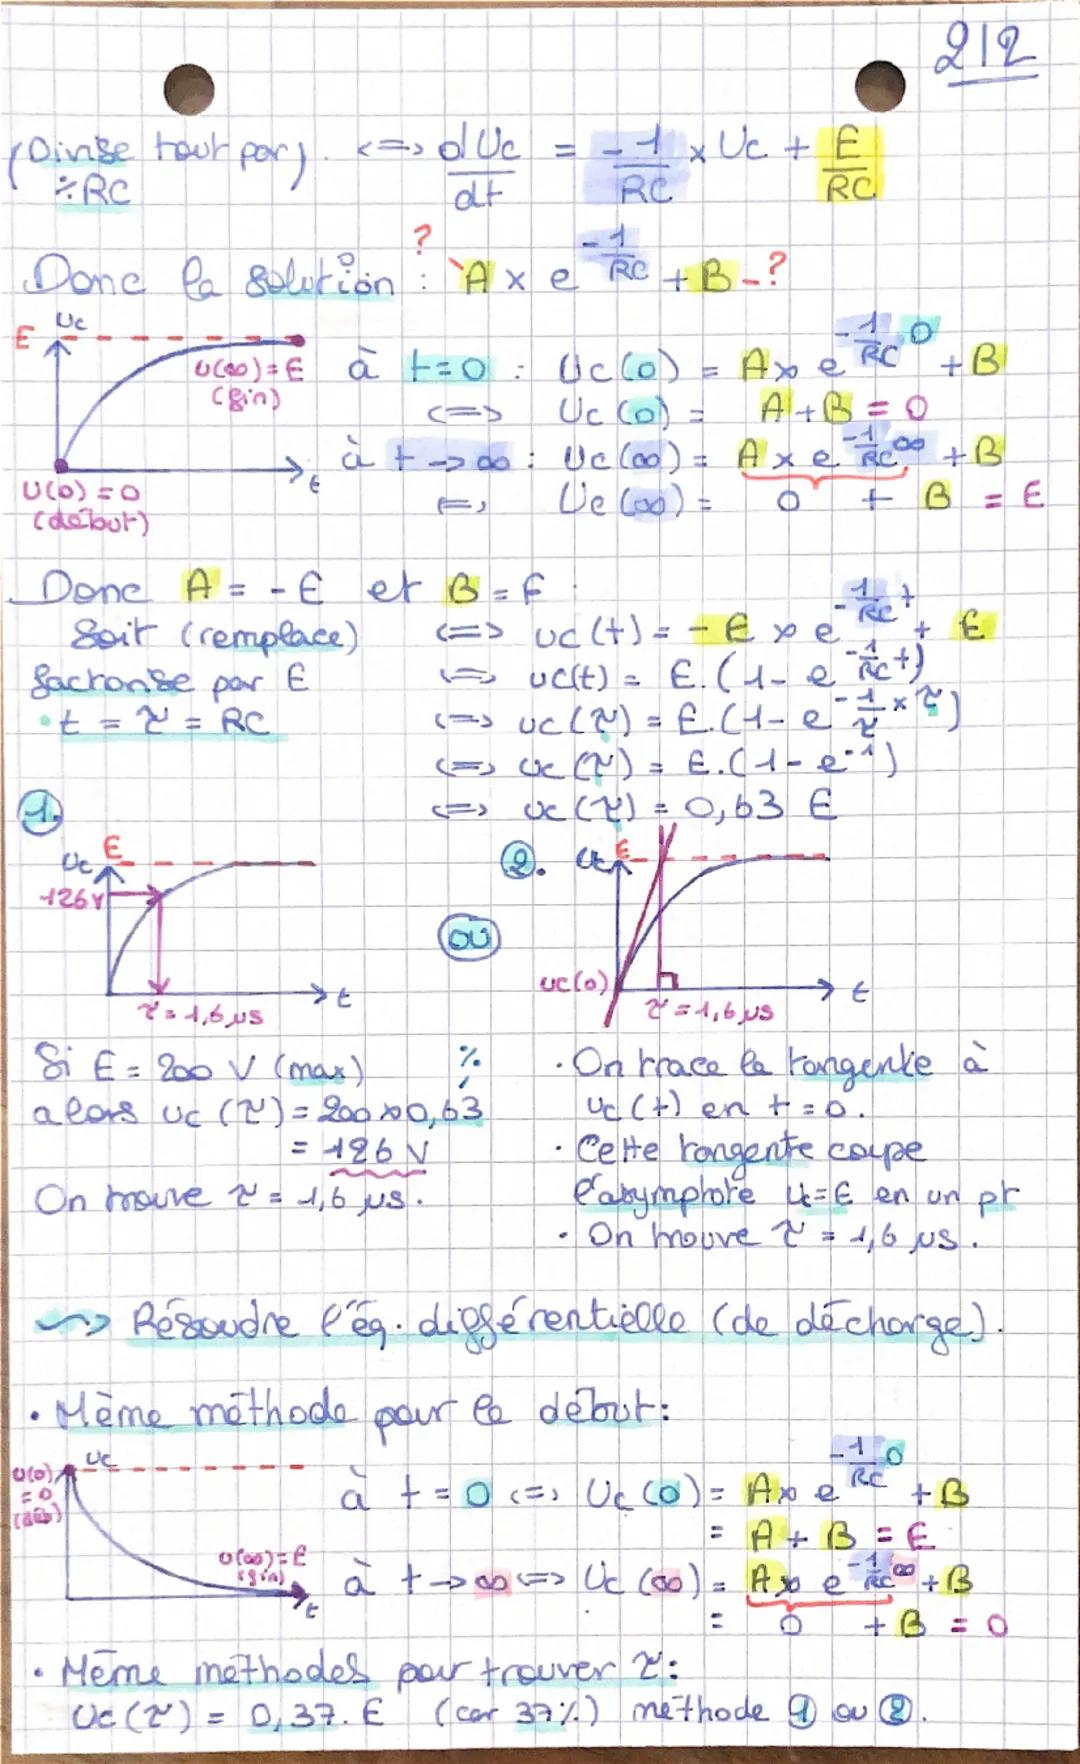 212
(Divise tout par) <=> dUc/dt = -1/RC × Uc + E/RC
÷RC
Donc la solution : A × e^(-1/RC) + B ?
?
E Uc
U(∞) = E
(fin)
t
U(0) = 0
(début)
à t=0 : Uc(0) = A × e^(-1/RC 0) + B
<=> Uc(0) = A + B = 0
à t → ∞ : Uc(∞) = A × e^(-1/RC ∞) + B
<=> Uc(∞) = 0 + B = E
Donc A = -E et B = E :
Soit (remplace) <=> uc(t) = -E × e^(-1/RC t) + E
factorise par E <=> uc(t) = E.(1- e^(-1/RC t))
• t = τ = RC <=> uc(τ) = E.(1- e^(-1/τ × τ))
<=> uc(τ) = E.(1- e^-1)
<=> uc(τ) = 0,63 E
1.
Uc E
126V
t
τ = 1,6 µs
OU
2. Uc E
uc(0)
t
τ = 1,6 µs
Si E = 200 V (max)
alors uc(τ) = 200×0,63
= 126 V
On trouve τ = 1,6 µs.
• On trace la tangente à
uc(t) en t = 0.
• Cette tangente coupe
l'asymptote U=E en un pt
• On trouve τ = 1,6 µs.
~> Résoudre l'éq. différentielle (de décharge).
• Même méthode pour le début:
U(0) Uc
= 0
U(∞) = E
(fin)
t
à t = 0 <=> Uc(0) = A × e^(-1/RC 0) + B
= A + B = E
à t → ∞ <=> Uc(∞) = A × e^(-1/RC ∞) + B
= 0 + B = 0
• Même méthodes pour trouver τ:
Uc(τ) = 0,37. E (car 37%) méthode 1 ou 2.